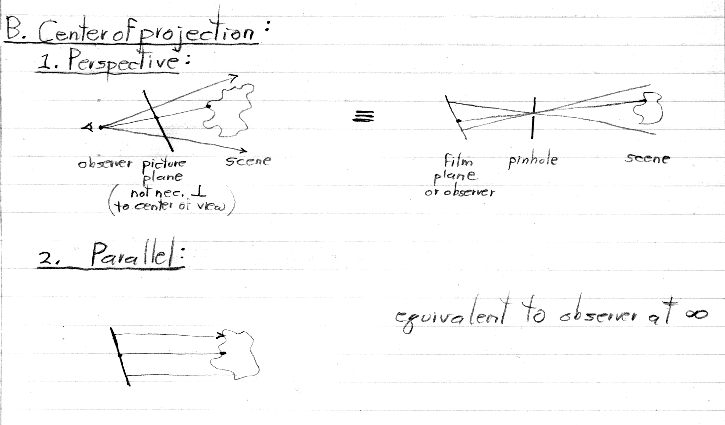 B. Center of projection:
1. Perspective:
≡
observer picture plane
(not nec. ⊥
to center of view)
scene
film
plane
or observer
pinhole
scene
2. Parallel:
equivalent to observer at ∞